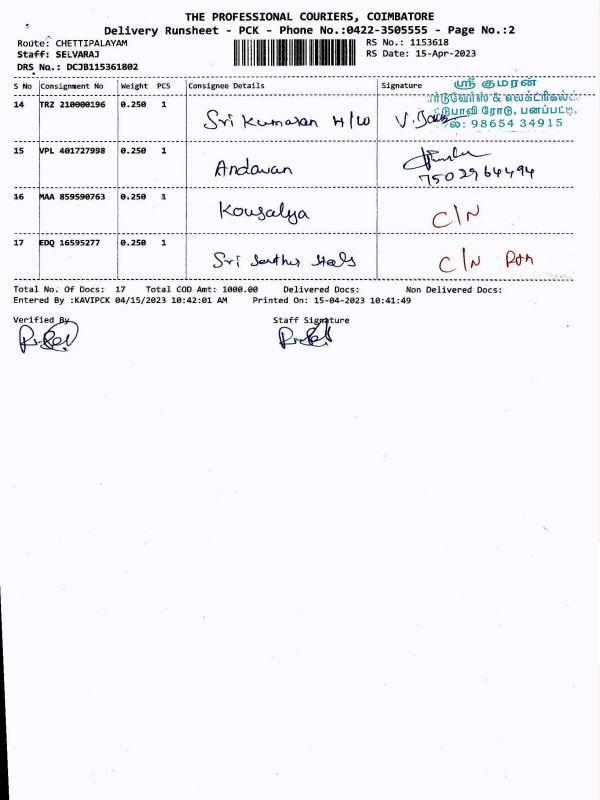 THE PROFESSIONAL COURIERS, COIMBATORE
Delivery Runsheet - PCK - Phone No.:0422-3505555 - Page No.:2
Route: CHETTIPALAYAM
RS No.: 1153618
Staff: SELVARAJ
RS Date: 15-Apr-2023
DRS No.: DCJB115361802
S No Consignment No Weight PCS Consignee Details Signature
ஸ்ரீ குமரன்
14 TRZ 210000196 0.250 1 Sri Kumaran H/W
ரோடு, பனப்பட்டி.
98654 34915
15 VPL 401727998 0.250 1 Andavan
7502964494
16 MAA 859590763 0.250 1 Kousalya C/N
17 EDQ 16595277 0.250 1 Sri C/N
Total No. Of Docs: 17 Total COD Amt: 1000.00 Delivered Docs: Non Delivered Docs:
Entered By :KAVIPCK 04/15/2023 10:42:01 AM Printed On: 15-04-2023 10:41:49
Verified By Staff Signature